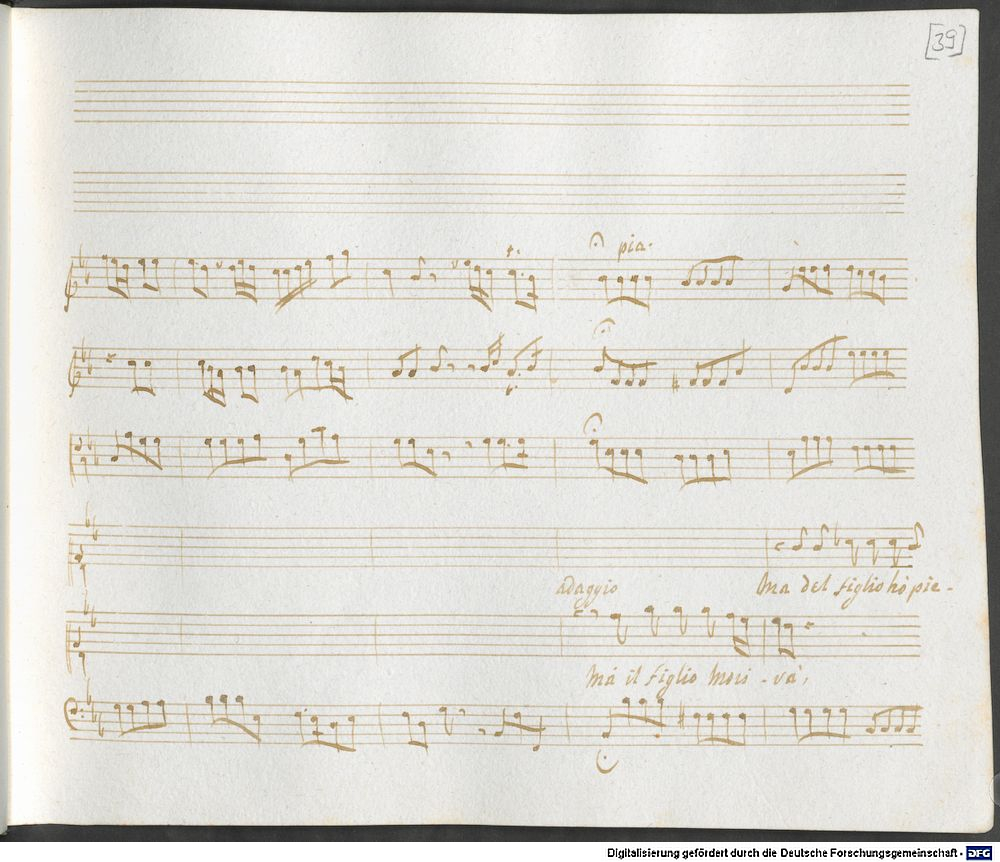 [39]
pia.
adaggio
Ma del figlio hò pie-
Má il figlio mori-và,
Digitalisierung gefördert durch die Deutsche Forschungsgemeinschaft - DFG